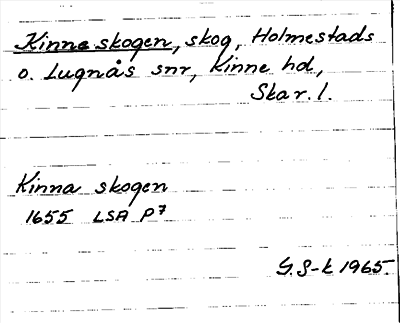 Kinneskogen, skog, Holmestads
o. Lugnås snr, Kinne hd,
Skar. l.
Kinna skogen
1655 LSA P7
G.S-k 1965.